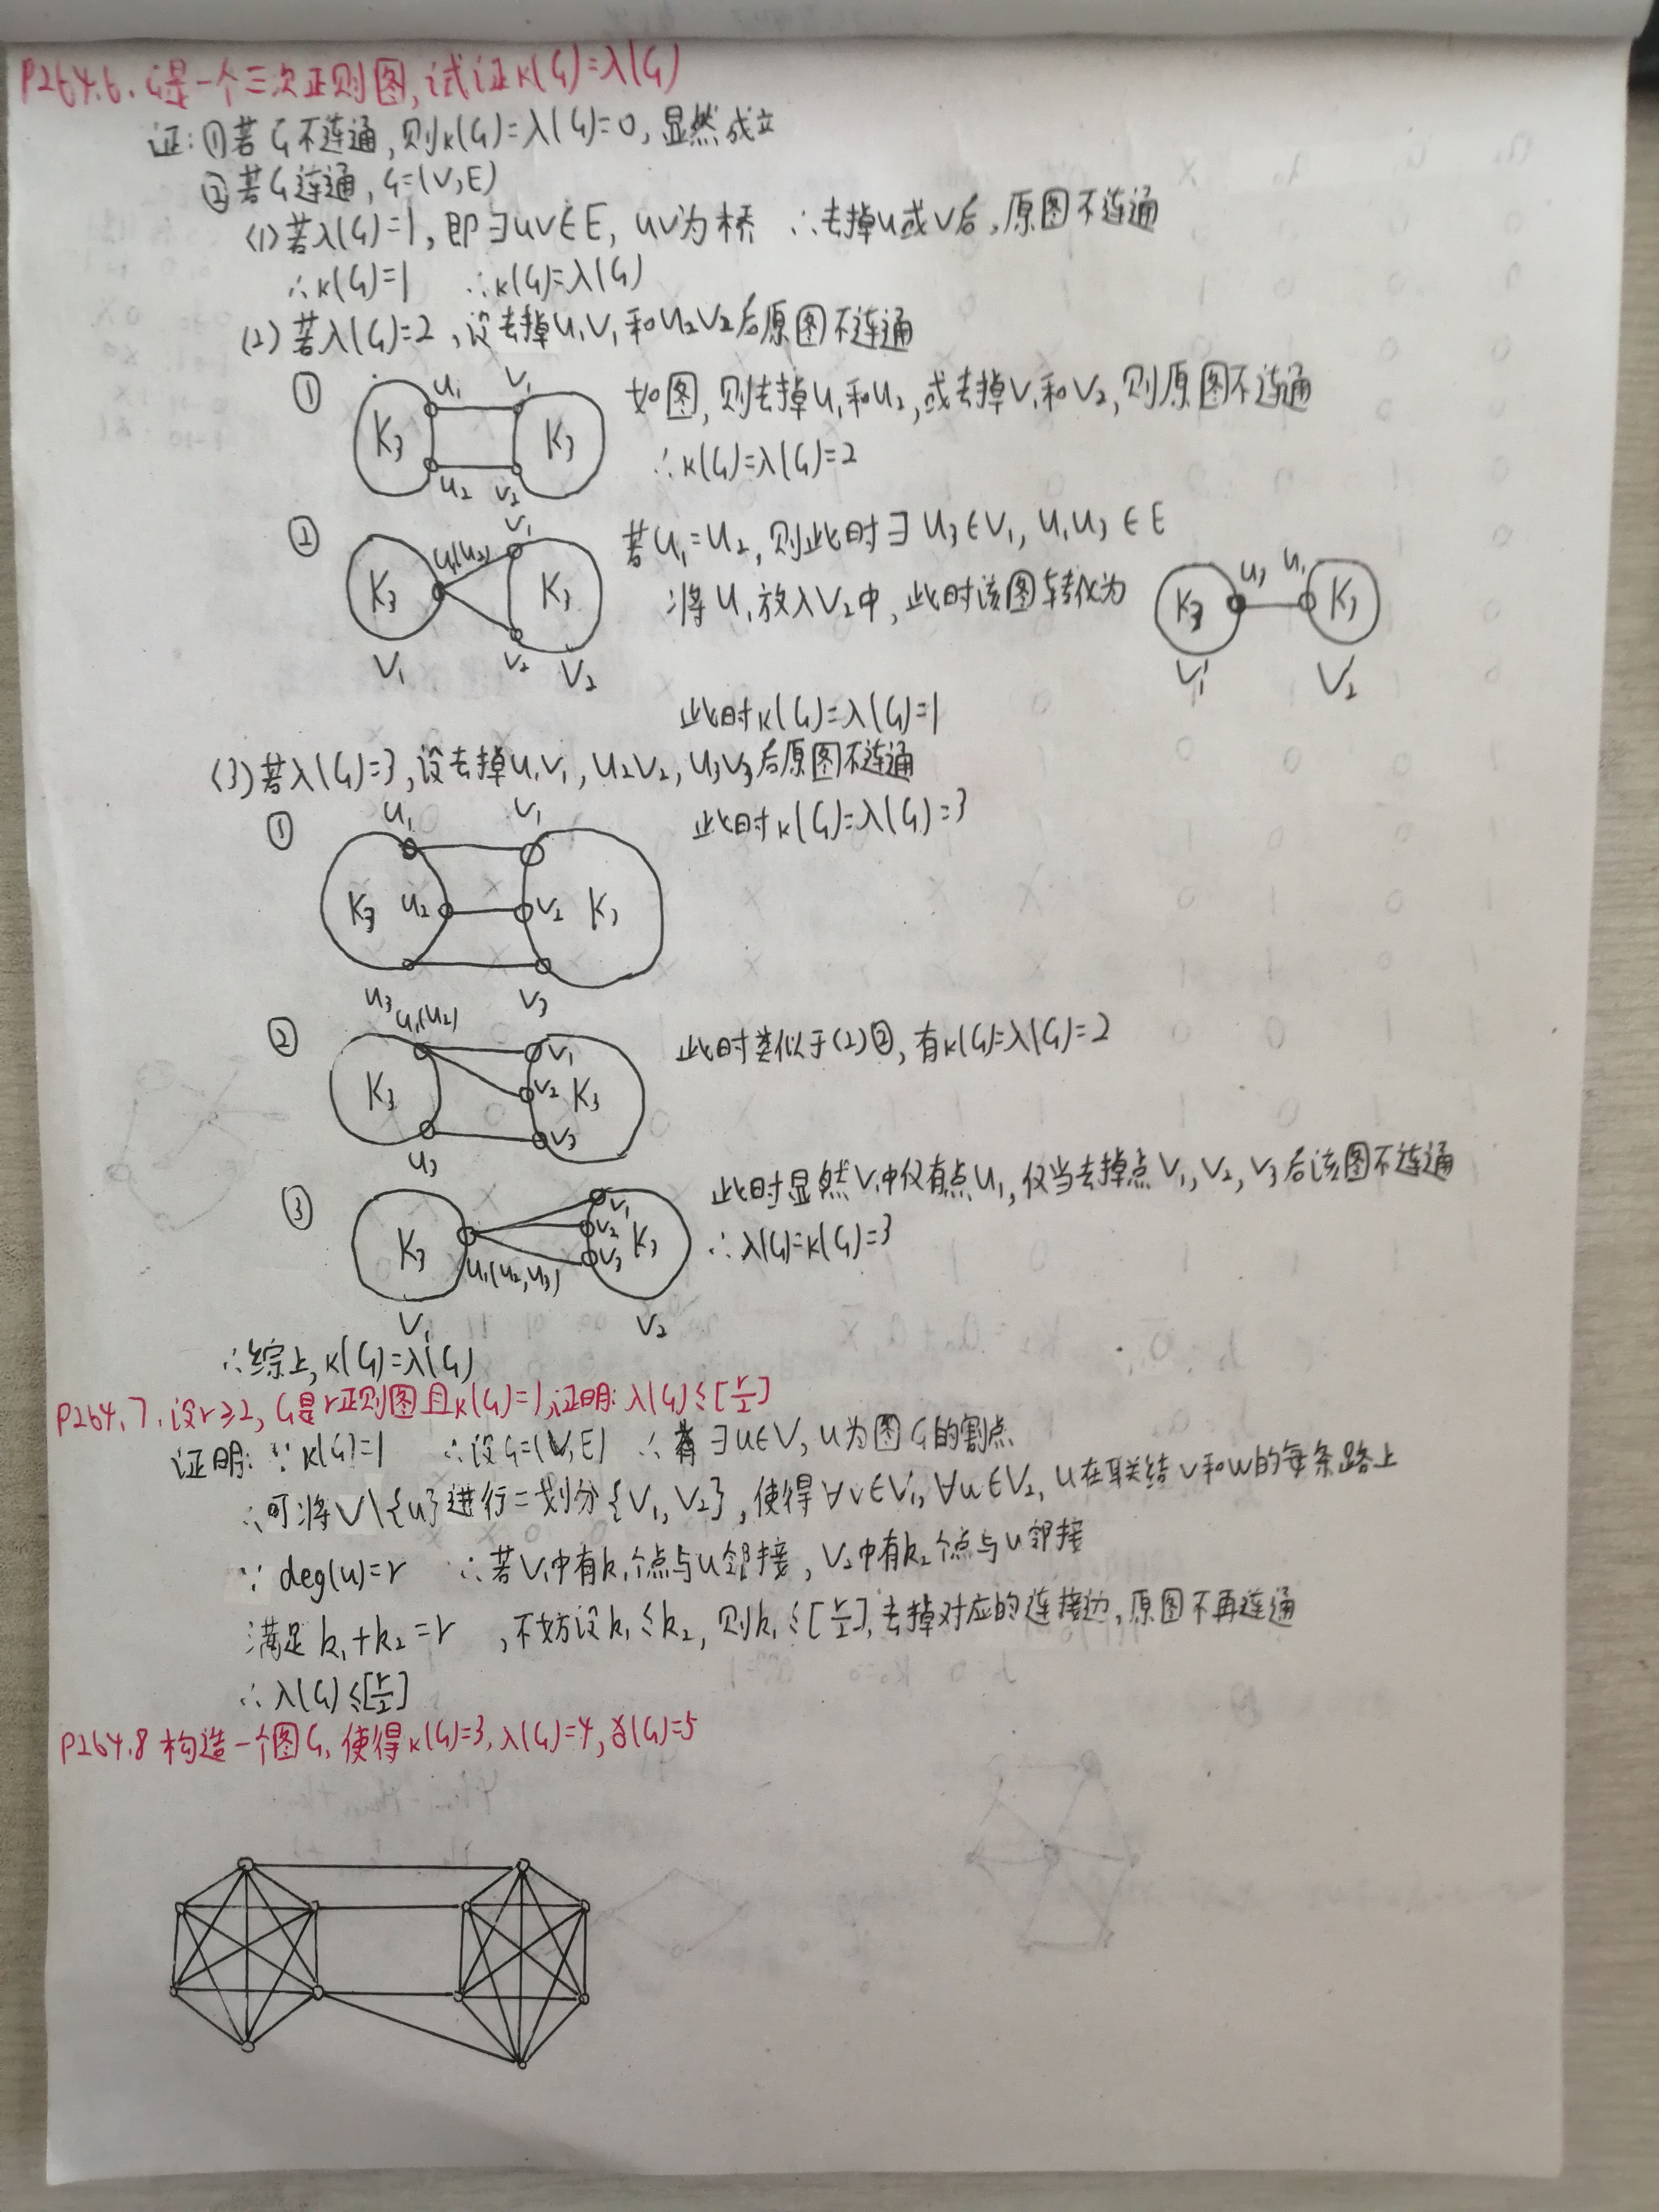 P264.6. G是一个三次正则图,试证κ(G)=λ(G)
证:①若G不连通,则κ(G)=λ(G)=0,显然成立
②若G连通,G=(V,E)
(1)若λ(G)=1,即∃uv∈E, uv为桥 ∴去掉u或v后,原图不连通
∴κ(G)=1 ∴κ(G)=λ(G)
(2)若λ(G)=2,设去掉u₁v₁和u₂v₂后原图不连通
① u₁ v₁ K₃ K₃ u₂ v₂
如图,则去掉u₁和u₂,或去掉v₁和v₂,则原图不连通
∴κ(G)=λ(G)=2
② u₁(u₂) v₁ K₃ K₃ v₂ V₁ V₂
若u₁=u₂,则此时∃u₃∈V₁, u₁u₃∈E
将u₁放入V₂中,此时该图转化为
K₃ u₃ u₁ K₃ V₁' V₂'
此时κ(G)=λ(G)=1
(3)若λ(G)=3,设去掉u₁v₁,u₂v₂,u₃v₃后原图不连通
① u₁ v₁ K₃ u₂ v₂ K₃ u₃ v₃
此时κ(G)=λ(G)=3
② u₁(u₂) v₁ K₃ v₂ K₃ v₃ u₃
此时类似于(2)②,有κ(G)=λ(G)=2
③ K₃ v₁ v₂ K₃ v₃ u₁(u₂,u₃) V₁ V₂
此时显然V₁中仅有点u₁,仅当去掉点v₁,v₂,v₃后该图不连通
∴λ(G)=κ(G)=3
∴综上,κ(G)=λ(G)
P264.7.设r≥2,G是r正则图且κ(G)=1,证明:λ(G)≤[r/2]
证明:∵κ(G)=1 ∴设G=(V,E) ∴∃u∈V,u为图G的割点
∴可将V\{u}进行二划分{V₁,V₂},使得∀v∈V₁,∀w∈V₂,u在联结v和w的每条路上
∵deg(u)=r ∴若V₁中有k₁个点与u邻接,V₂中有k₂个点与u邻接
满足k₁+k₂=r ,不妨设k₁≤k₂,则k₁≤[r/2],去掉对应的连接边,原图不再连通
∴λ(G)≤[r/2]
P264.8 构造一个图G,使得κ(G)=3,λ(G)=4,δ(G)=5